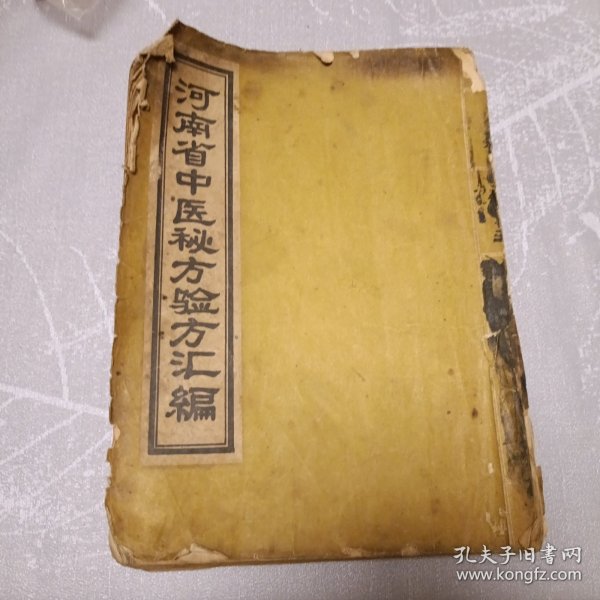 河南省中医秘方验方汇编
孔夫子旧书网
www.kongfz.com